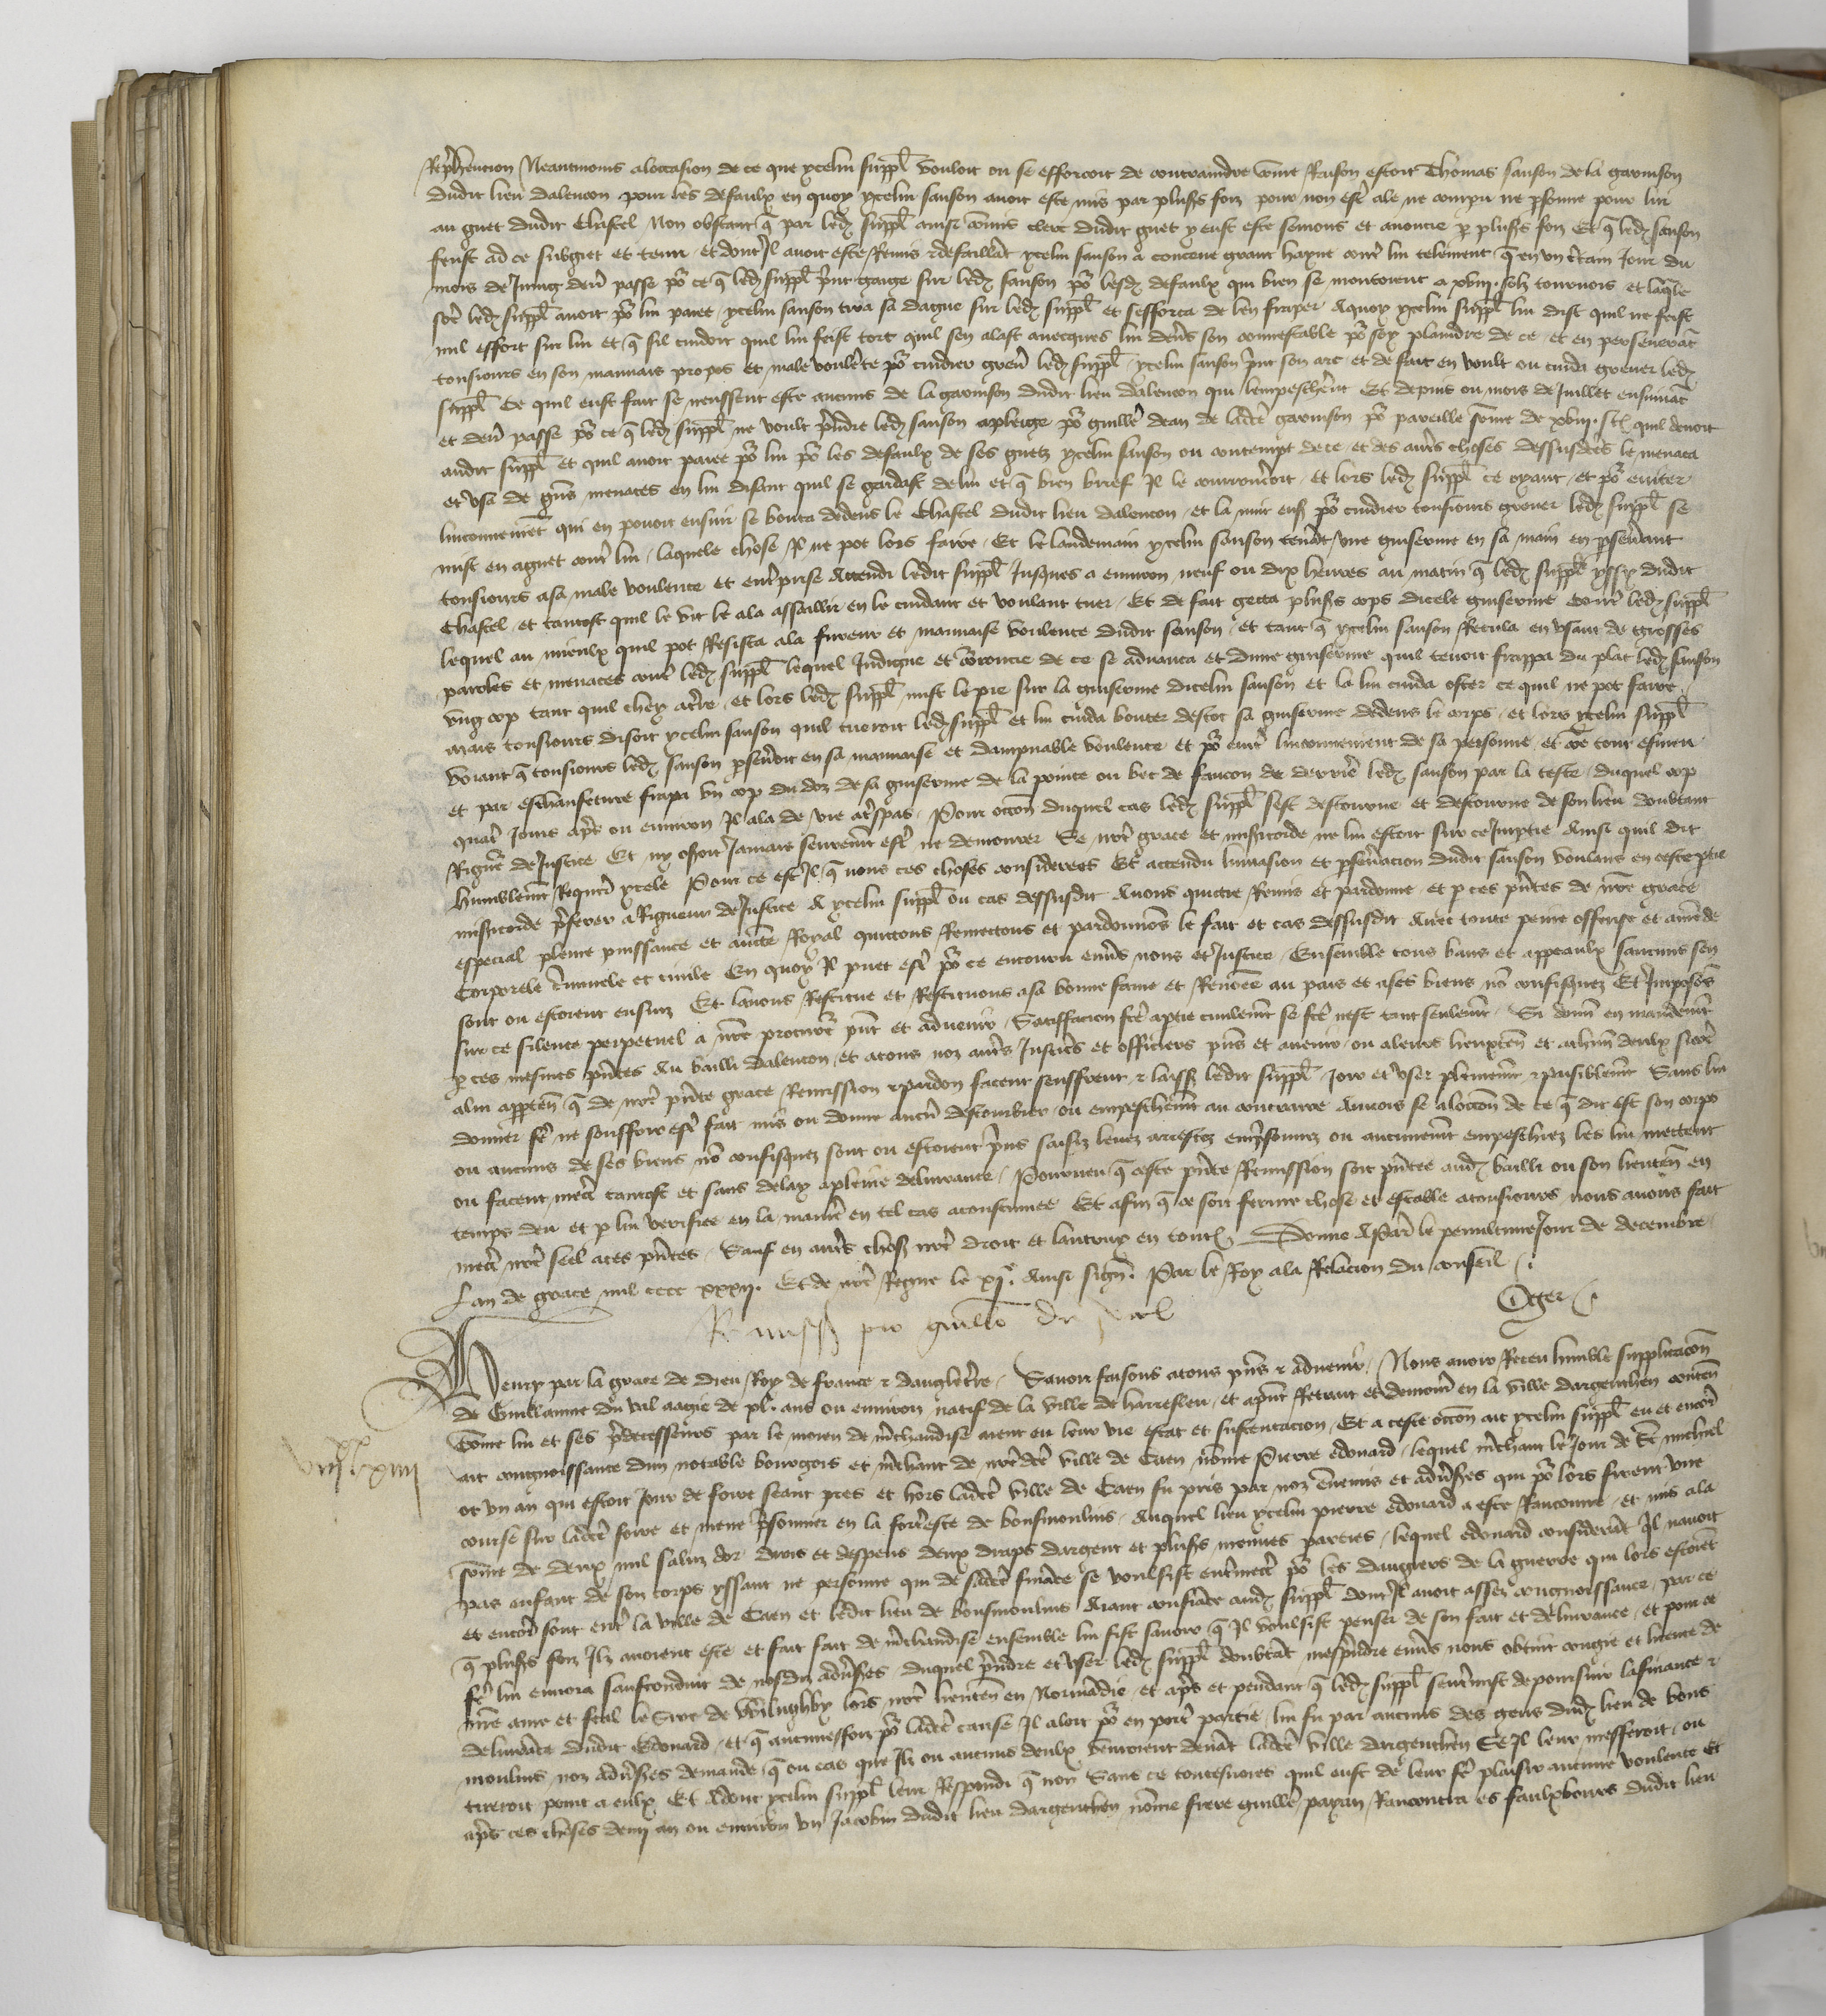 Reprehencion Neantmoins a loccasion de ce que ycelui suppl vouloit ou se efforcoit de contraindre come Raison estoit Thomas Sanson de la garnison
dudit lieu dalencon pour les defaulx en quoy ycelui Sanson avoit este mis par plusrs foiz pour non estre ale ne compu ne psonne pour lui
au guet dudit Chastel Non obstant q par ledz suppl ainsi comis clerc dudit guet y eust este semons et anoncie p plusrs foiz Et q ledz Sanson
feust ad ce subgiet et tenu et dont Il avoit este Remis & defaillant ycelui Sanson a conceue grant hayne contre lui telement q en un certain Jour du
mois de Juing dern passe po ce q ledz suppl print gaige sur ledz Sanson po lesdz defaulx qui bien se montoient a xviij solz tournois et laqle
soe ledz suppl avoit po lui paiee ycelui Sanson tira sa dague sur ledz suppl et sefforca de len fraper Aquoy ycelui suppl lui dist quil ne feist
nul effort sur lui et q sil cuidoit quil lui feist tort quil sen alast avecques lui devers son connestable po soy plaindre de ce et en perseverat
tousiours en son mauvais propos et male voulete po cuidier grever ledz suppl ycelui Sanson print son arc et de fait en voult ou cuida grever ledz
suppl Ce quil eust fait se neussent este aucuns de la garnison dudit lieu dalencon qui lempescherent Et depuis ou mois de Juillet ensuivat
et dern passe po ce q ledz suppl ne voult prendre ledz Sanson a pleige po guille dean de ladicte garnison po pareille some de xviij s quil devoit
audit suppl et quil avoit paiee po lui po les defaulx de ses guetz ycelui Sanson ou contempt de ce et des autres choses dessusdictes le menaca
et usa de grns menaces en lui disant quil se gardast de lui et q bien brief Il le courrouceroit et lors ledz suppl ce oyant et po eviter
linconvenient qui en povoit ensuir se bouta dedens le Chastel dudit lieu dalencon et la nuit ens po cuidier tousiours grever ledz suppl se
mist en aguet contre lui laquele chose Il ne pot lors faire Et le landemain ycelui Sanson tenat une guiserme en sa main en pseverant
tousiours a sa male voulente et entreprise Attendi ledit suppl Jusques a environ neuf ou dix heures au matin q ledz suppl yssy dudit
Chastel et tantost quil le vit le ala assaillir en le cuidant et voulant tuer Et de fait gecta plusrs cops dicele guiserme contre ledz suppl
lequel au mieulx quil pot Resista a la fureur et mauvaise voulente dudit Sanson et tant q ycelui Sanson Recula en usant de grosses
paroles et menaces contre ledz suppl lequel Indigne et coroucie de ce se advanca et dune guiserme quil tenoit frappa du plat ledz Sanson
ung cop tant quil chey a terre et lors ledz suppl mist le pie sur la guiserme dicelui Sanson et la lui cuida oster ce quil ne pot faire
mais tousiours disoit ycelui Sanson quil tueroit ledz suppl et lui cuida bouter destoc sa guiserme dedens le corps et lors ycelui suppl
voiant q tousiours ledz Sanson pseveroit en sa mauvaise et dampnable voulente et po eviter linconvenient de sa personne et come tout esmeu
et par eschaufeture frapa un cop du doz de sa guiserme de la pointe ou bec de faucon de derriere ledz Sanson par la teste duquel cop
quatre Jours apres ou environ Il ala de vie a trespas Pour occon duquel cas ledz suppl sest destourne et destourne de son lieu doubtant
Riguer de Justice Et ny oseroit Jamais seurement estre ne demourer Se notre grace et misericorde ne lui estoit sur ce Impartie Ainsi quil dit
humblement Requerant ycele Pour ce est Il q nous ces choses considerees Et attendu linvasion et pseveracion dudit Sanson voulans en ceste ptie
misericorde preferer a Rigueur de Justice A ycelui suppl ou cas dessusdit Avons quicte Remis et pardonne et p ces pntes de notre grace
especial pleine puissance et aucte Royal quictons Remectons et pardonnons le fait et cas dessusdit Avec toute peine offense et amede
Corporele criminele et civile En quoy Il puet estre po ce encouru envers nous et Justice Ensemble tous bans et appeaulx saucuns sen
sont ou estoient ensuiz Et lavons Restitue et Restituons a sa bonne fame et Renomee au pais et a ses biens no confisquez Et Imposons
sur ce silence perpetuel a notre procureur pnt et advenir Satiffacion fce a ptie civilement se fce nest tant seulement Si donn en mandement
p ces mesmes pntes Au bailli dalencon et a tous noz autres Justiciers et officiers pns et avenir ou a leurs lieuxten et a chun deulx si come
a lui apptendra q de notre pnte grace Remission & pardon facent seuffrent & laissent ledit suppl Joir et user plainement & paisiblement Sans lui
donner fe ne souffrir estre fait mis ou donne aucun destourbier ou empeschement au contraire Aincois se a loccon de ce q dit est son corps
ou aucuns de ses biens no confisquez sont ou estoient prins saisiz levez arrestez emprisonnez ou aucunement empeschez les lui mettent
ou facent mectre tantost et sans delay a pleine delivrance Pourveu q ceste pnte Remission soit pntee audz bailli ou son lieuten en
temps deu et p lui verifiee en la maniere en tel cas acoustumee Et afin q ce soit ferme chose et estable a tousiours nous avons fait
mectre notre seel a ces pntes Sauf en autres choses notre droit et lautruy en toutes Donne A Paris le penultime Jour de decembre
Lan de grace mil cccc xxxij Et de notre Regne le xj. Ainsi signe Par le Roy a la Relacion du conseil
Oger
Remissio pro guillo du val
Henry par la grace de dieu Roy de france & dangleterre Savoir faisons a tous pns & advenir Nous avoir Receu humble supplicacon
de Guillaume du val aagie de xl ans ou environ natif de la ville de harrefleu et a pnt Retrait et demourant en la ville dargenthen conten
Come lui et ses predecesseurs par le moien de mchandise aient eu leur vie estat et sustentacion Et a ceste occon ait ycelui suppl eu et encores
viijxx xiiij
ait congnoissance dun notable bourgois et mchant de notre dicte ville de Caen nome Pierre edouard lequel mchant le Jour de St michiel
ot un an qui estoit Jour de foire seant pres et hors ladicte ville de Caen fu pris par noz ennemis et adversrs qui po lors firent une
course sur ladicte foire et mene prisonnier en la forteresce de bonsmoulins Auquel lieu ycelui pierre edouard a este Ranconne et mis a la
some de deux mil saluz dor drois et despens deux draps dargent et plusrs menues parties lequel edouard considerat quil navoit
pas enfant de son corps yssant ne personne qui de sadicte finace se voulsist entremectre po les dangiers de la guerre qui lors estoiet
et encores sont entre la ville de Caen et ledit lieu de bonsmoulins Aiant confiace audz suppl dont Il avoit assez congnoissance par ce
q plusrs foiz Ilz avoient este et fait fait de mchandise ensemble lui fist savoir q Il voulsist penser de son fait et delivrance et pour ce
fe lui envoia saufconduit de nosdiz adversrs duquel prendre et user ledz suppl doubtat mesprendre envers nous obtint congie et licence de
notre ame et feal le Sire de Wilughby lors notre lieuten en Normadie et apres et pendant q ledz suppl sentremist de poursuir la finance &
delivrace dudit Edouard et q aucunesfoiz po ladicte cause Il aloit po en porter partie lui fu par aucuns des gens dudz lieu de bons
moulins noz adversrs demande q ou cas que Ilz ou aucuns deulx venroient devat ladicte ville dargenthen Se Il leur mefferoit ou
tireroit point a eulx Et Adonc ycelui suppl leur Respondi q non Sans ce toutesvoies quil eust de leur fe plaisir aucune voulente Et
apres ces choses demy an ou environ un Jacobin dudit lieu dargenthen nome frere guille payan Rancontra es faulxbours dudit lieu